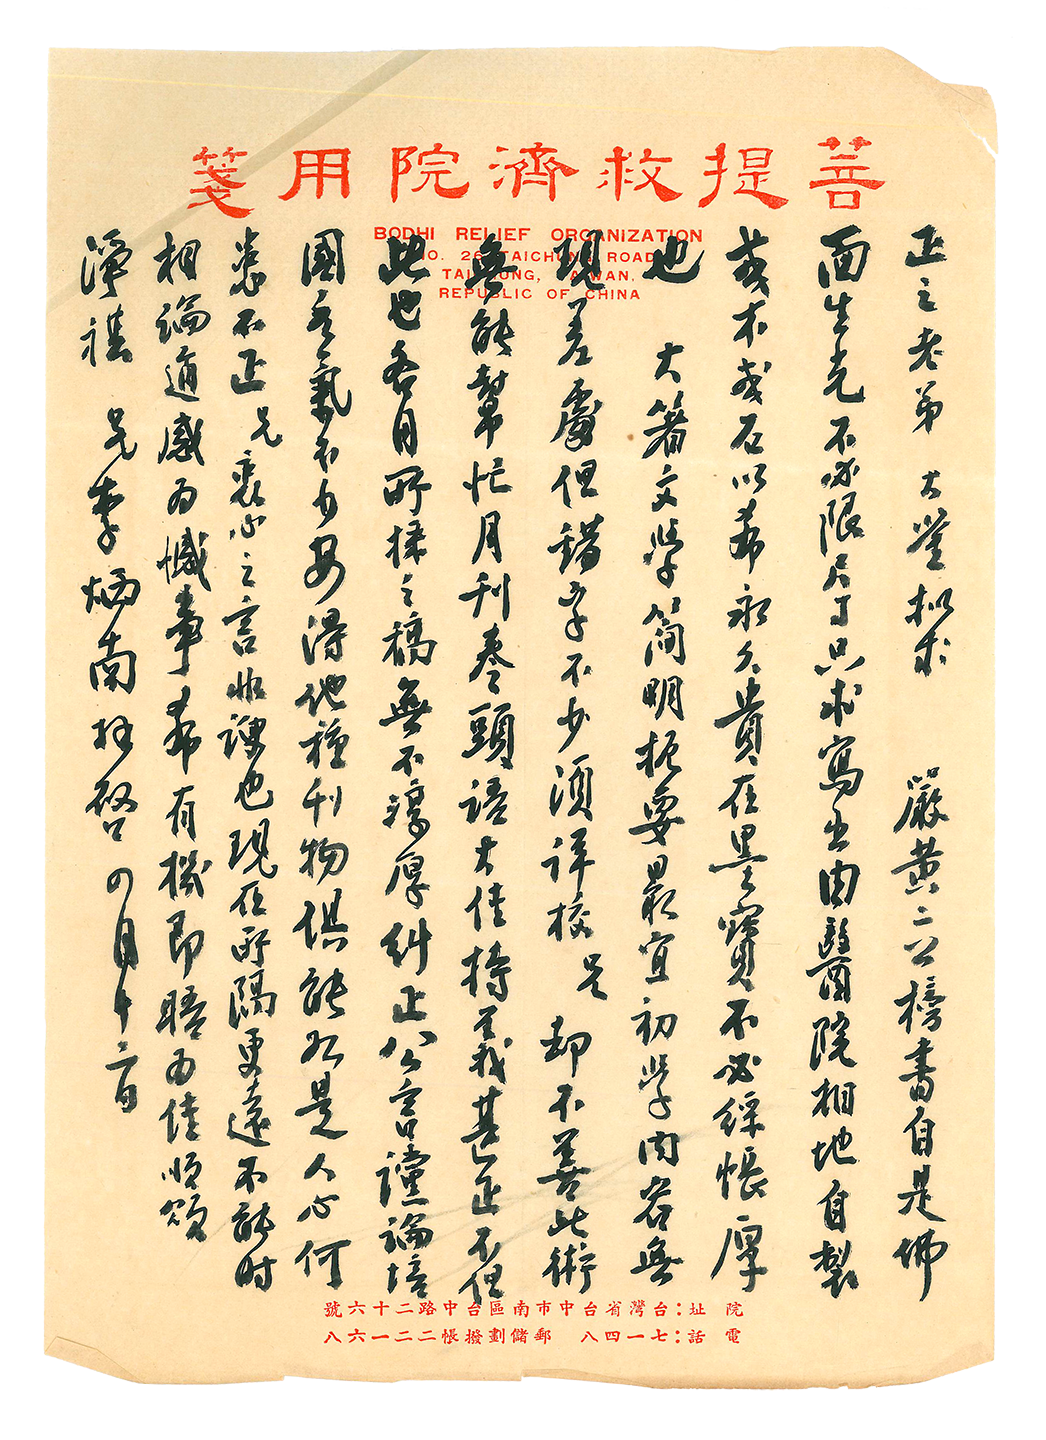 菩提救濟院用箋
BODHI RELIEF ORGANIZATION
NO. 26, TAICHUNG ROAD
TAICHUNG, TAIWAN,
REPUBLIC OF CHINA
正之老弟 大鑒拟求 嚴黃二公榜書自是佛
面生光不必限尺寸只求寫出由醫院相地自製
或木或石以希永久貴在墨寶不必綵帳厚
也 大箸文學簡明扼要最宜初學內容無
現差處但錯字不少須詳校 兄 却不善此術
無能幫忙月刊卷頭語大佳持義甚正不但
此也各月所採之稿無不淳厚糾正公言讜論培
國元氣不少安得他種刊物俱能如是人心何
患不正 兄衷心之言非諛也現在所隔更遠不能时
相論適感为憾事希有機即晤为佳順頌
淨祺 兄李炳南拜啓 四月十二日
院址：台灣省台中市南區台中路二十六號
電話：七一四八 郵儲劃撥帳二二一六八